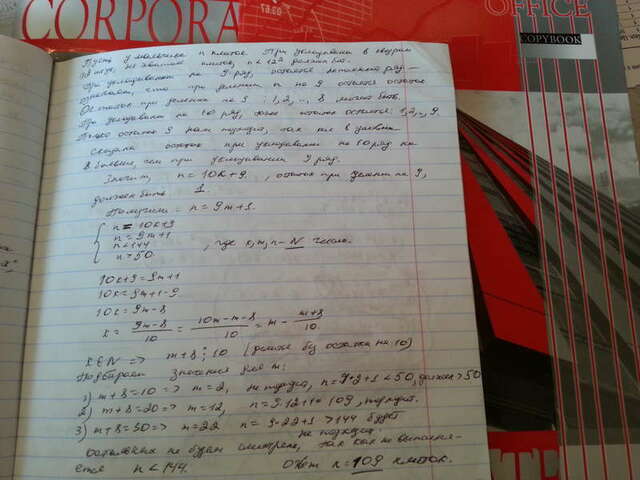 CORPORA
OFFICE
COPYBOOK
Пусть у мальчика n плиток. При укладывании в квадрат
плиток, n < 12² должно быть.
При укладывании по 9 в ряд, остается неполный ряд –
означает, что при делении n на 9 остается остаток
Остаток при делении на 9: 1, 2, ..., 8 может быть.
При укладывании по 10 в ряд, тоже остаток остается: 1, 2, .., 9.
Только остаток 9 нам подходит, так как в условии
сказано остаток при укладывании по 10 в ряд на
8 больше, чем при укладывании 9 в ряд.
Значит, n = 10k+9, остаток при делении на 9,
должен быть 1.
Получаем: n = 9m+1.
n = 10k+9
n = 9m+1
n < 144
n > 50
, где k, m, n – N числа.
10k+9 = 9m+1
10k = 9m+1-9
10k = 9m-8
k = 9m-8/10 = 10m-m-8/10 = m - m+8/10
k∈N => m+8 ⋮ 10 (делится без остатка на 10)
Подбираем значения для m:
1) m+8=10 => m=2, не подходит, n=9·2+1<50, должен >50
2) m+8=20 => m=12, n=9·12+1=109, подходит.
3) m+8=30 => m=22 n=9·22+1 >144 будет
не подходит.
остальных не будем смотреть, так как не выполня-
ется n < 144. Ответ n = 109 плиток.
TE